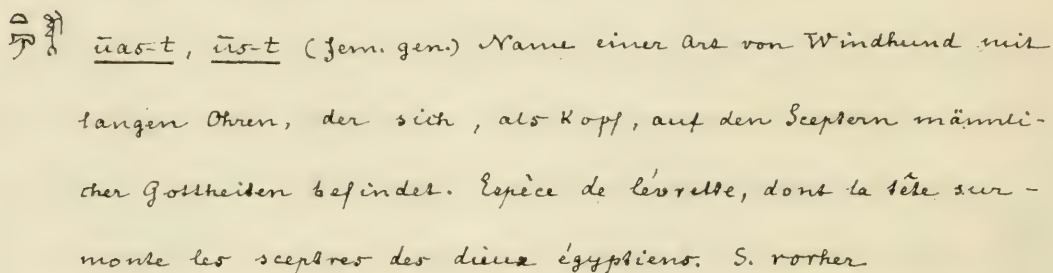 ūas-t, ūs-t (fem. gen.) Name einer Art von Windhund mit
langen Ohren, der sich, als Kopf, auf den Sceptern männli-
cher Gottheiten befindet. Espèce de lévrette, dont la tête sur-
monte les sceptres des dieux égyptiens. S. vorher